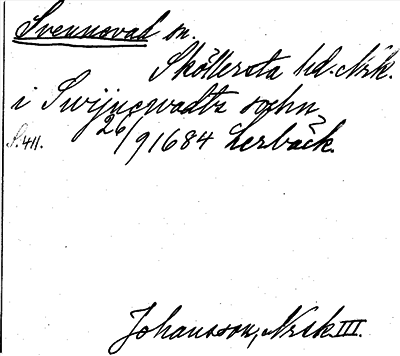 Svennevad sn.
Sköllersta hd. Nrk.
i Swijnewadtz sochn
S. 411. 26/9 1684 Lerbäck.
Johansson, Nrsk III.